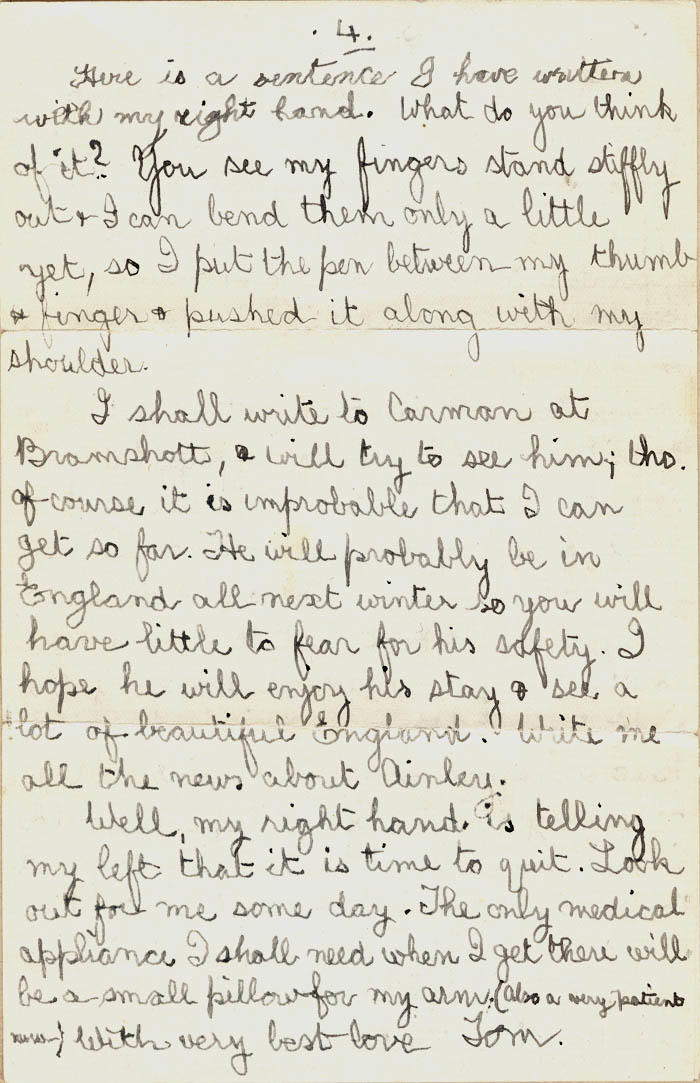 . 4.
Here is a sentence I have written
with my right hand. What do you think
of it? You see my fingers stand stiffly
out & I can bend them only a little
yet, so I put the pen between my thumb
& finger & pushed it along with my
shoulder.
I shall write to Carman at
Bramshott, & will try to see him; tho.
of course it is improbable that I can
get so far. He will probably be in
England all next winter so you will
have little to fear for his safety. I
hope he will enjoy his stay & see a
lot of beautiful England. Write me
all the news about Ainley.
Well, my right hand is telling
my left that it is time to quit. Look
out for me some day. The only medical
appliance I shall need when I get there will
be a small pillow for my arm. (Also a very patient
nurse) With very best love Tom.